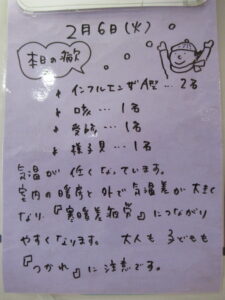 2月6日(火)
本日の欠
インフルエンザA型…2名
咳…1名
発熱…1名
様子見…1名
気温が低くなっています。
室内の暖房と外で気温差が大きく
なり『寒暖差疲労』につながり
やすくなります。大人も子どもも
『つかれ』に注意です。